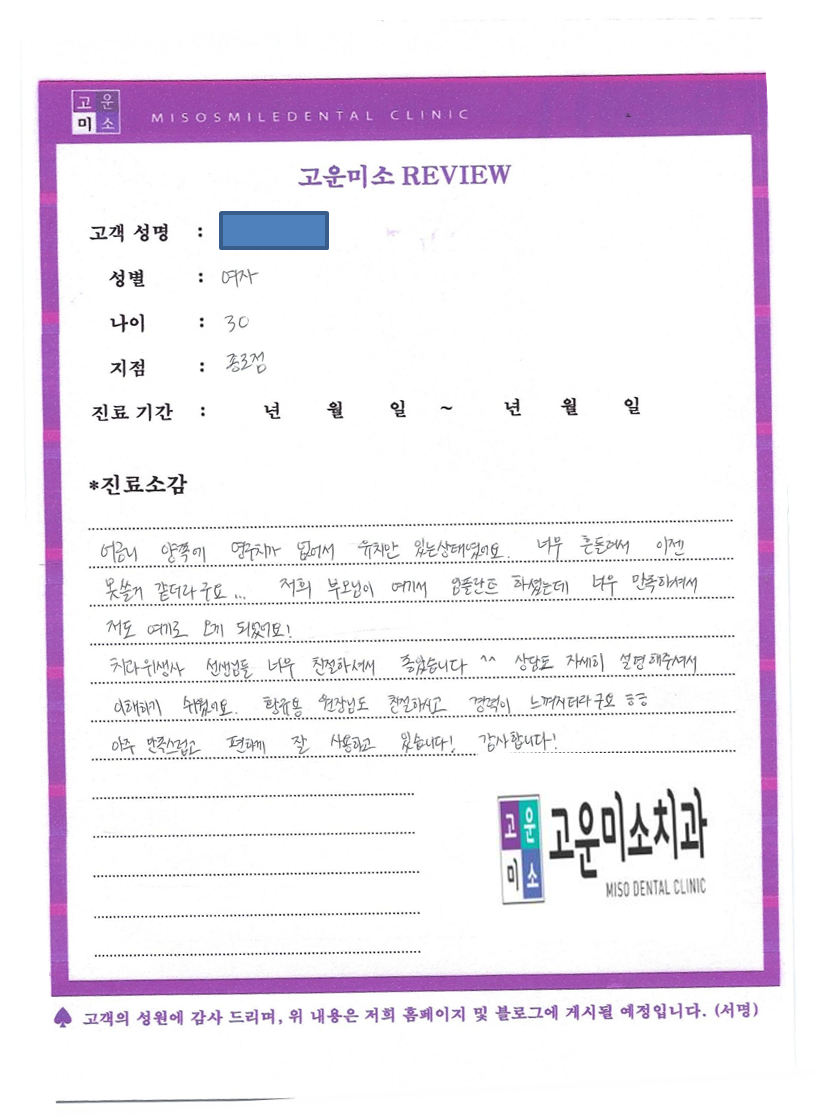 고운
미소
MISOSMILEDENTAL CLINIC
고운미소 REVIEW
고객 성명 :
성별 : 여자
나이 : 30
지점 : 종로점
진료 기간 : 년 월 일 ~ 년 월 일
*진료소감
어금니 양쪽에 영구치가 없어서 유치만 있는상태였어요. 너무 흔들려서 이젠
못쓸거 같더라구요... 저희 부모님이 여기서 임플란트 하셨는데 너무 만족하셔서
저도 여기로 오게 되었어요!
치과위생사 선생님들 너무 친절하셔서 좋았습니다 ^^ 상담도 자세히 설명해주셔서
이해하기 쉬웠어요. 원장님도 친절하시고 경력이 느껴지더라구요 ㅎㅎ
아주 만족스럽고 편하게 잘 사용하고 있습니다! 감사합니다!
고운
미소
고운미소치과
MISO DENTAL CLINIC
♠ 고객의 성원에 감사 드리며, 위 내용은 저희 홈페이지 및 블로그에 게시될 예정입니다. (서명)